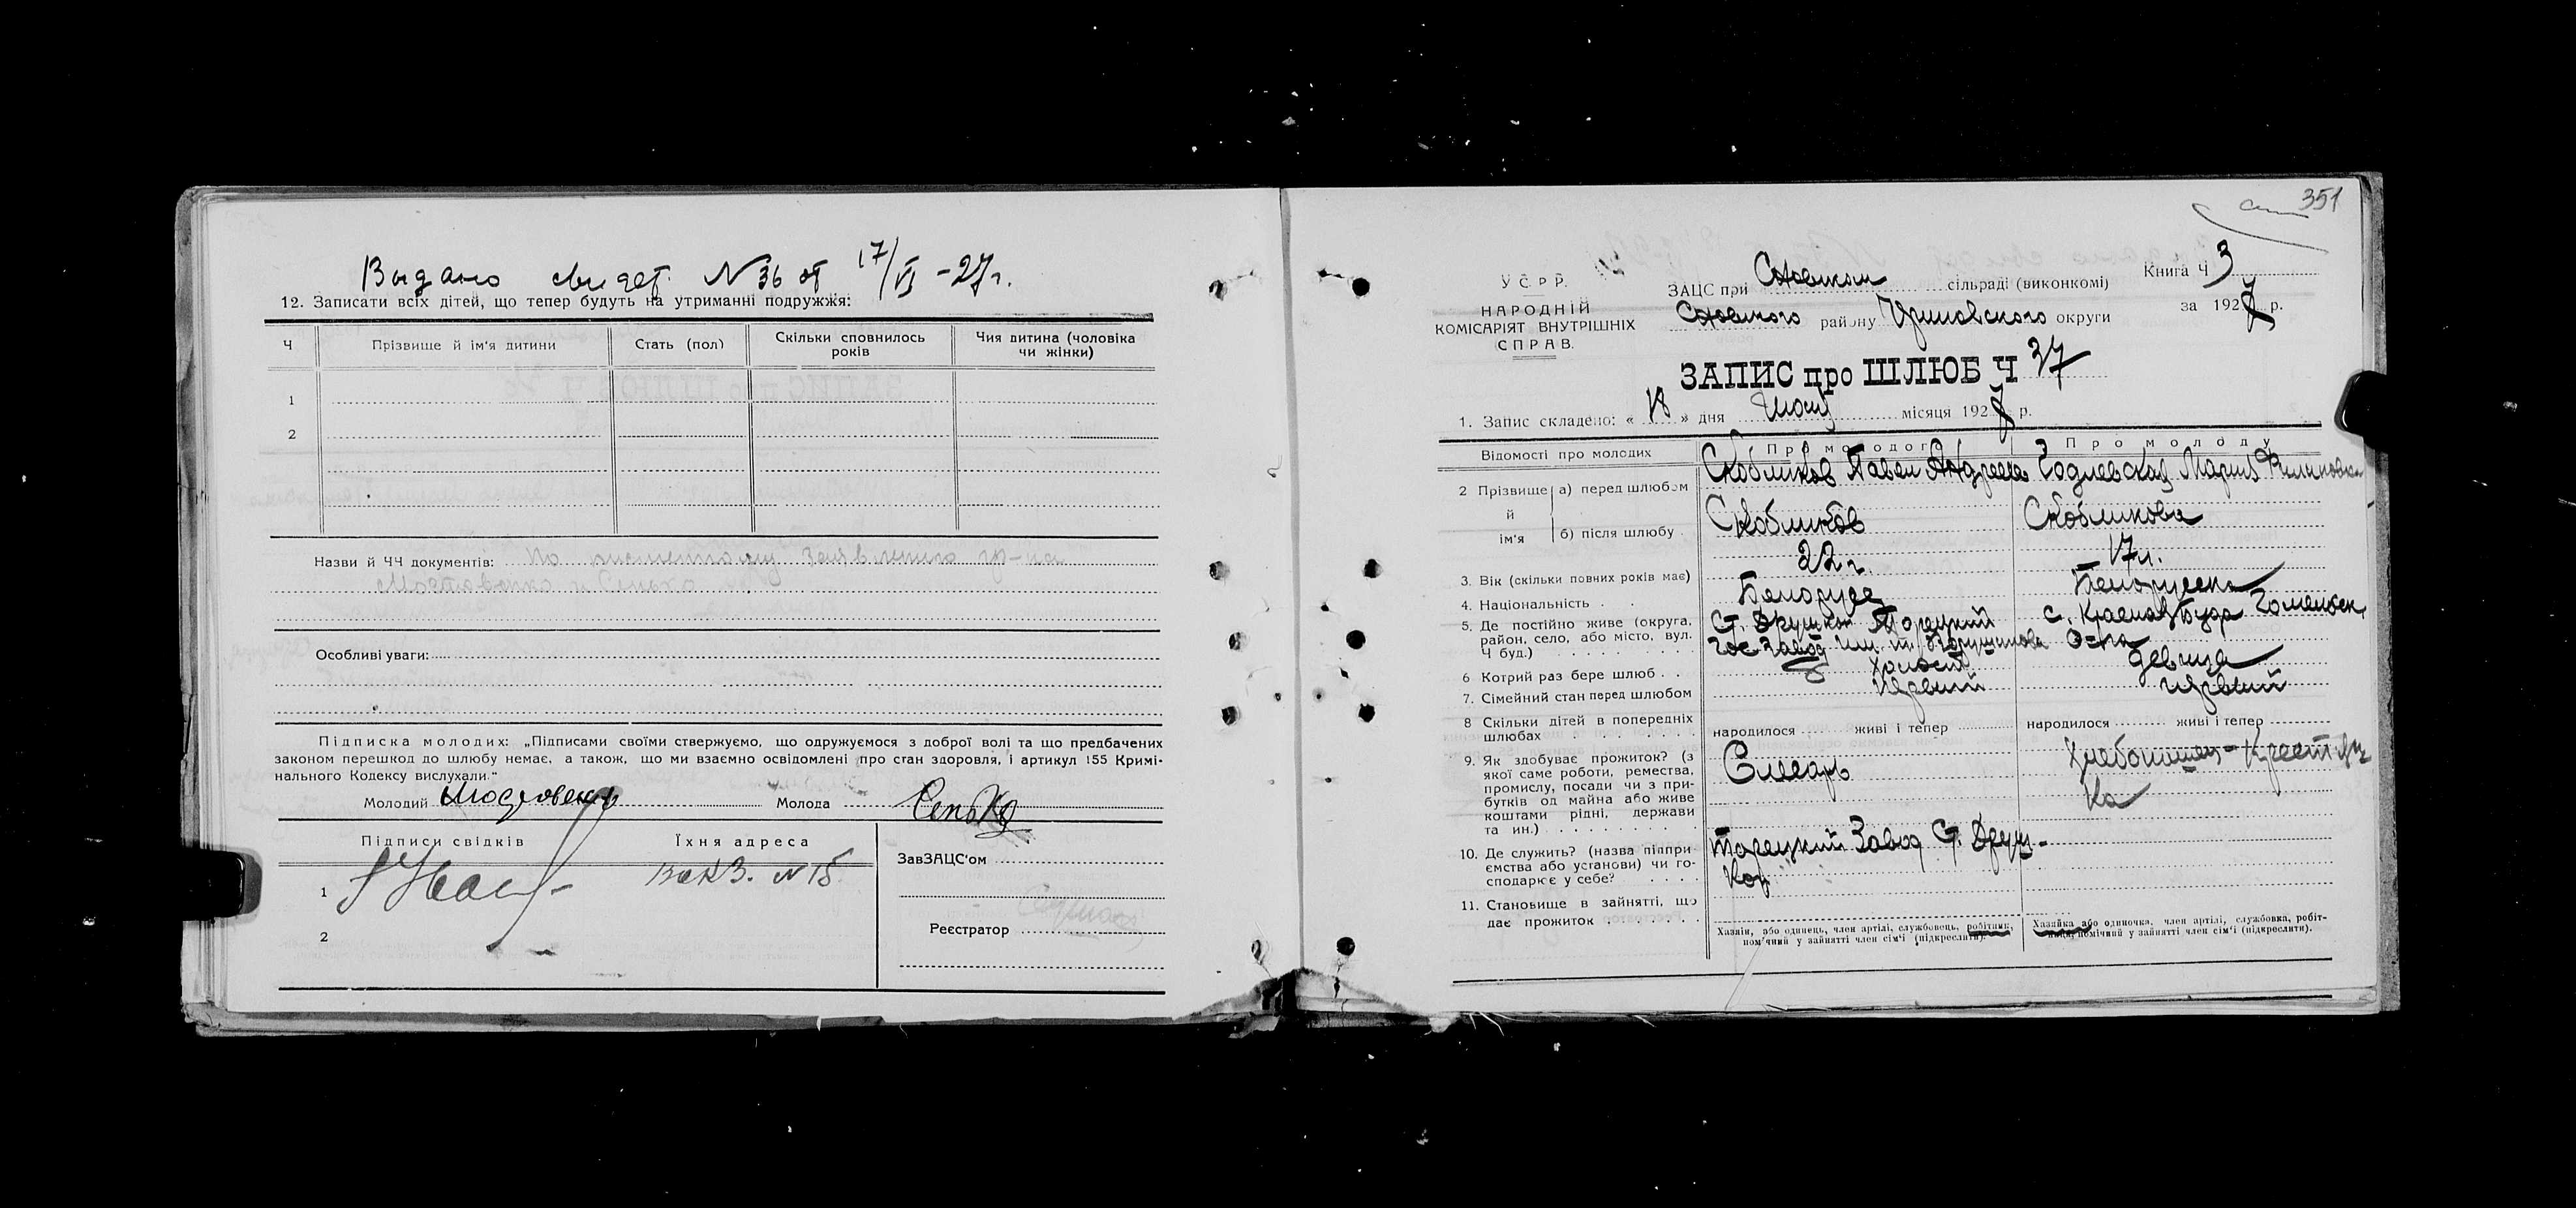 Выдано свидет. N 36 от 17/VI -27г.
12. Записати всіх дітей, що тепер будуть на утриманні подружжя:
Ч
Прізвище й ім'я дитини
Стать (пол)
Скільки сповнилось років
Чия дитина (чоловіка чи жінки)
1
2
Назви й ЧЧ документів: По заявлению гр-на
Особливі уваги:
Підписка молодих: „Підписами своїми стверджуємо, що одружуємося з доброї волі та що предбачених
законом перешкод до шлюбу немає, а також, що ми взаємно освідомлені про стан здоровля, і артикул 155 Кримі-
нального Кодексу вислухали."
Молодий
Молода Сенько
Підписи свідків
Їхня адреса
1
N 15
2
ЗавЗАЦС'ом
Реєстратор
351
УСРР.
НАРОДНІЙ
КОМІСАРІЯТ ВНУТРІШНІХ
СПРАВ.
ЗАЦС при сільраді (виконкомі)
району округи
Книга Ч 3
за 1927 р.
ЗАПИС про ШЛЮБ Ч 37
1. Запис складено: « 18 » дня місяця 1927 р.
Відомості про молодих
Про молодого
Про молоду
2 Прізвище й ім'я
а) перед шлюбом
Скобликов Павел Андреев
Годлевская Мария
б) після шлюбу
Скобликов
Скобликова
3. Вік (скільки повних років має)
22 г.
17 л.
4. Національність
Белорусс
Белорусска
5. Де постійно живе (округа,
район, село, або місто, вул.
Ч буд.)
Ст. Дружков Торецкий
Гос Завод им. т.
с. Красная Буда Гомельск
6 Котрий раз бере шлюб
Холост
девица
7. Сімейний стан перед шлюбом
Первый
первый
8 Скільки дітей в попередніх
шлюбах
народилося живі і тепер
народилося живі і тепер
9. Як здобуває прожиток? (з
якої саме роботи, ремества,
промислу, посади чи з при-
бутків од майна або живе
коштами рідні, держави
та ин.)
Слесарь
10. Де служить? (назва підпри
ємства або установи) чи го-
сподарює у себе?
Торецкий Завод Ст. Друж-
ков
11. Становище в зайнятті, що
дає прожиток
Хазяїн, або одинець, член артілі, службовець, робітник,
пом'чний у зайнятті член сім'ї (підкреслити).
Хазяйка або одиночка, член артілі, службовка, робіт-
ниця, помічний у зайнятті член сім'ї (підкреслити).